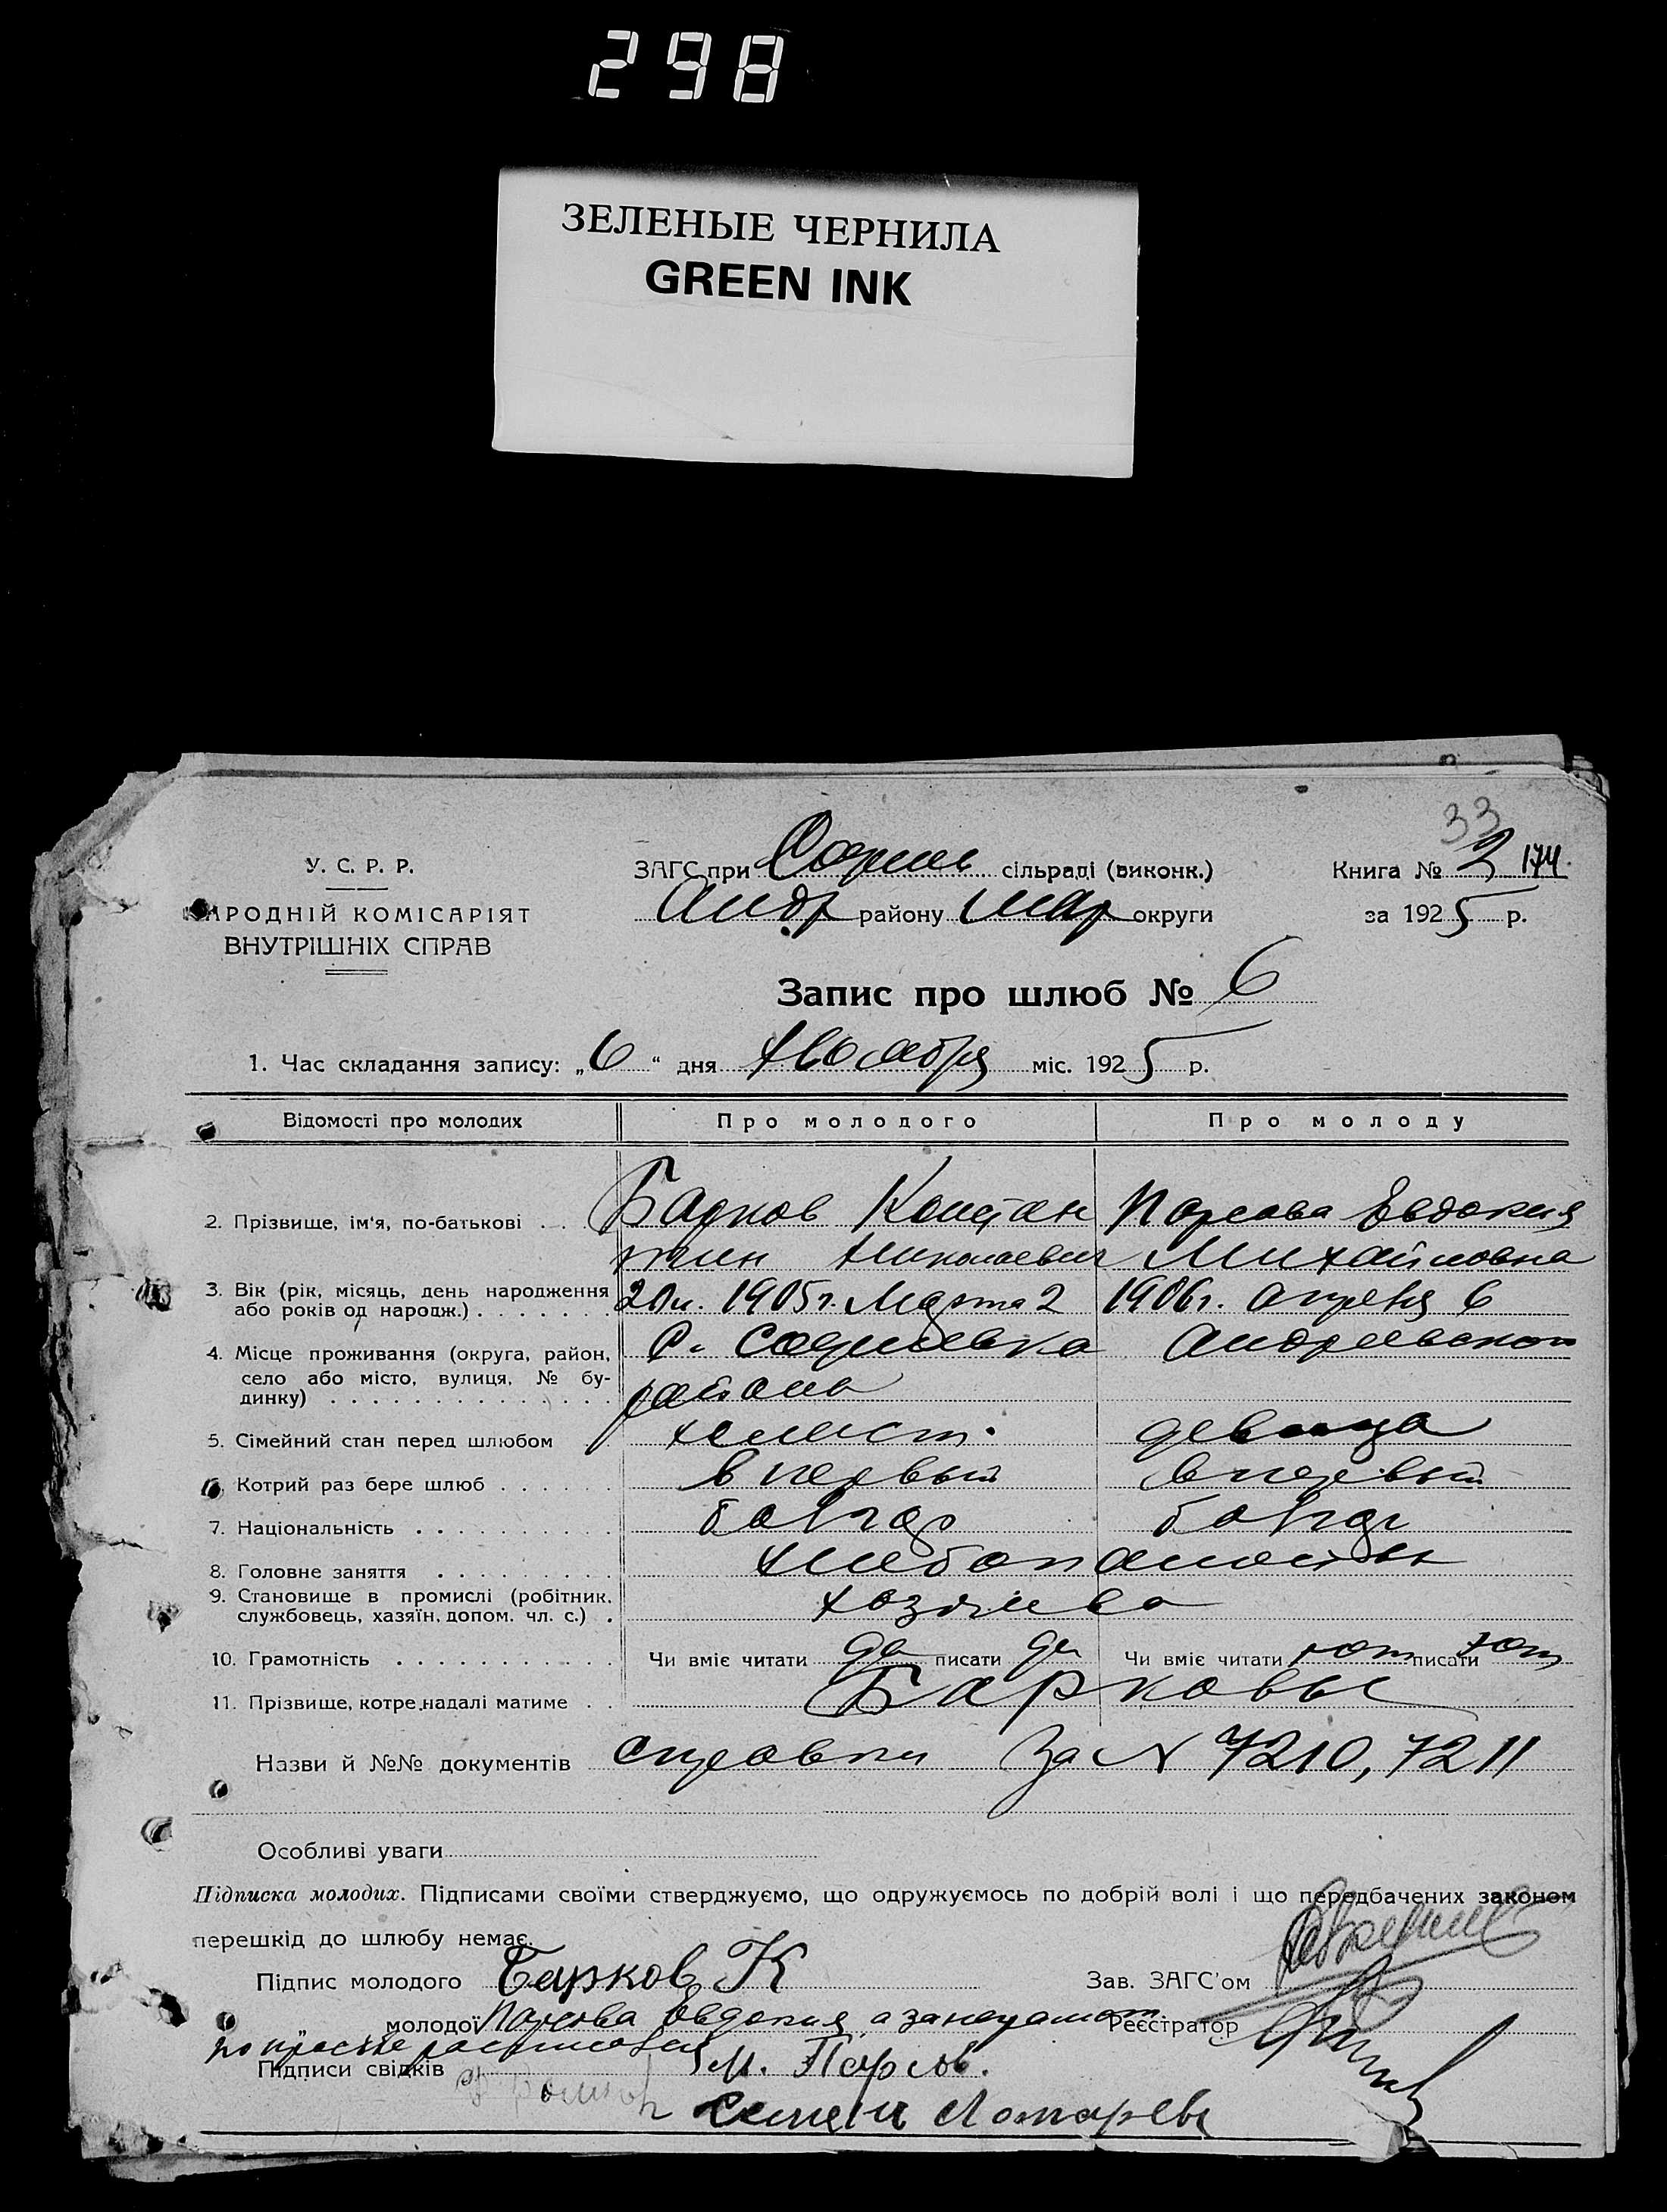 298
ЗЕЛЕНЫЕ ЧЕРНИЛА
GREEN INK
33
У. С. Р. Р.
НАРОДНІЙ КОМІСАРІЯТ
ВНУТРІШНІХ СПРАВ
ЗАГС при Софиев сільраді (виконк.)
Андр району Мар округи
Книга № 2 174
за 1925 р.
Запис про шлюб № 6
1. Час складання запису: „6“ дня ноября міс. 1925 р.
Відомості про молодих Про молодого Про молоду
2. Прізвище, ім'я, по-батькові Барков Констан Евдокия
тин Николаевич Михайловна
3. Вік (рік, місяць, день народження
або років од народж.) 20 л. 1905 г. Марта 2 1906 г. Апреля 6
4. Місце проживання (округа, район,
село або місто, вулиця, № бу-
динку) с. Софиевка Андреевского
района
5. Сімейний стан перед шлюбом холост. девица
6. Котрий раз бере шлюб в первый в первый
7. Національність болгар болгар
8. Головне заняття хлебопашество
9. Становище в промислі (робітник,
службовець, хазяїн, допом. чл. с.) хозяева
10. Грамотність Чи вміє читати да писати да Чи вміє читати нет писати нет
11. Прізвище, котре надалі матиме Барковы
Назви й №№ документів справки за N 7210, 7211
Особливі уваги
Підписка молодих. Підписами своїми стверджуємо, що одружуємось по добрій волі і що передбачених законом
перешкід до шлюбу немає.
Підпис молодого Барков К Зав. ЗАГС'ом
молодої Евдокия а за неграмот. Реєстратор
по просьбе расписался
Підписи свідків М.
Семен